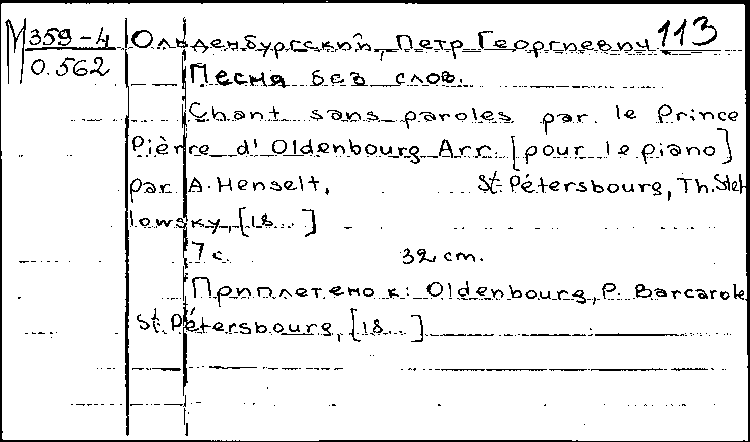 М 359-4 Ольденбургский, Петр Георгиевич 113
О.562 Песня без слов.
Chant sans paroles par. le Prince
Pièrre d'Oldenbourg Arr. [pour le piano]
par A. Henselt, St. Pétersbourg, Th. Stel
lowsky, [18...]
7 с. 32 cm.
Приплетено к: Oldenbourg, P. Barcarole
St. Pétersbourg, [18...]